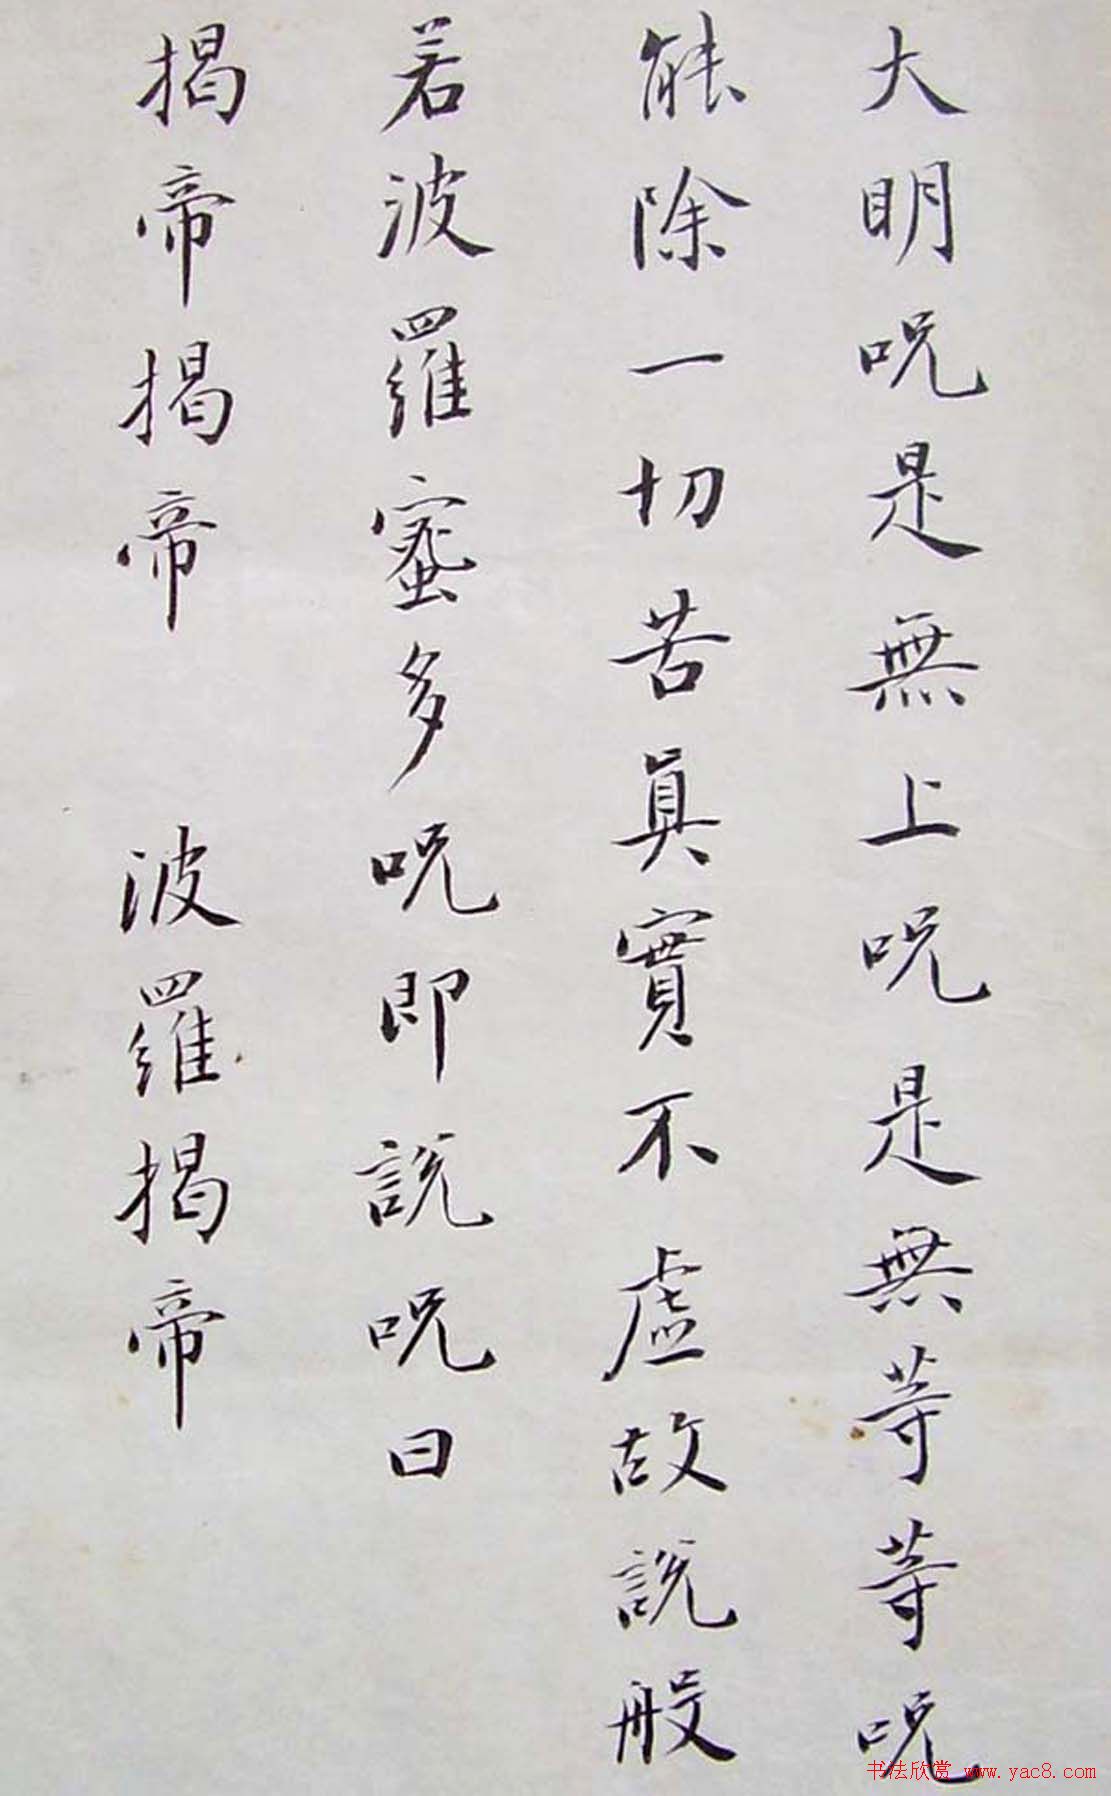 大明呪是無上呪是無等等呪
能除一切苦真實不虛故說般
若波羅蜜多呪即說呪曰
揭帝揭帝 波羅揭帝
书法欣赏 www.yac8.com